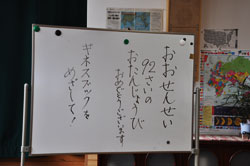 おおせんせい
92さいの
おたんじょうび
おめでとうございます
ギネスブックを
めざして!